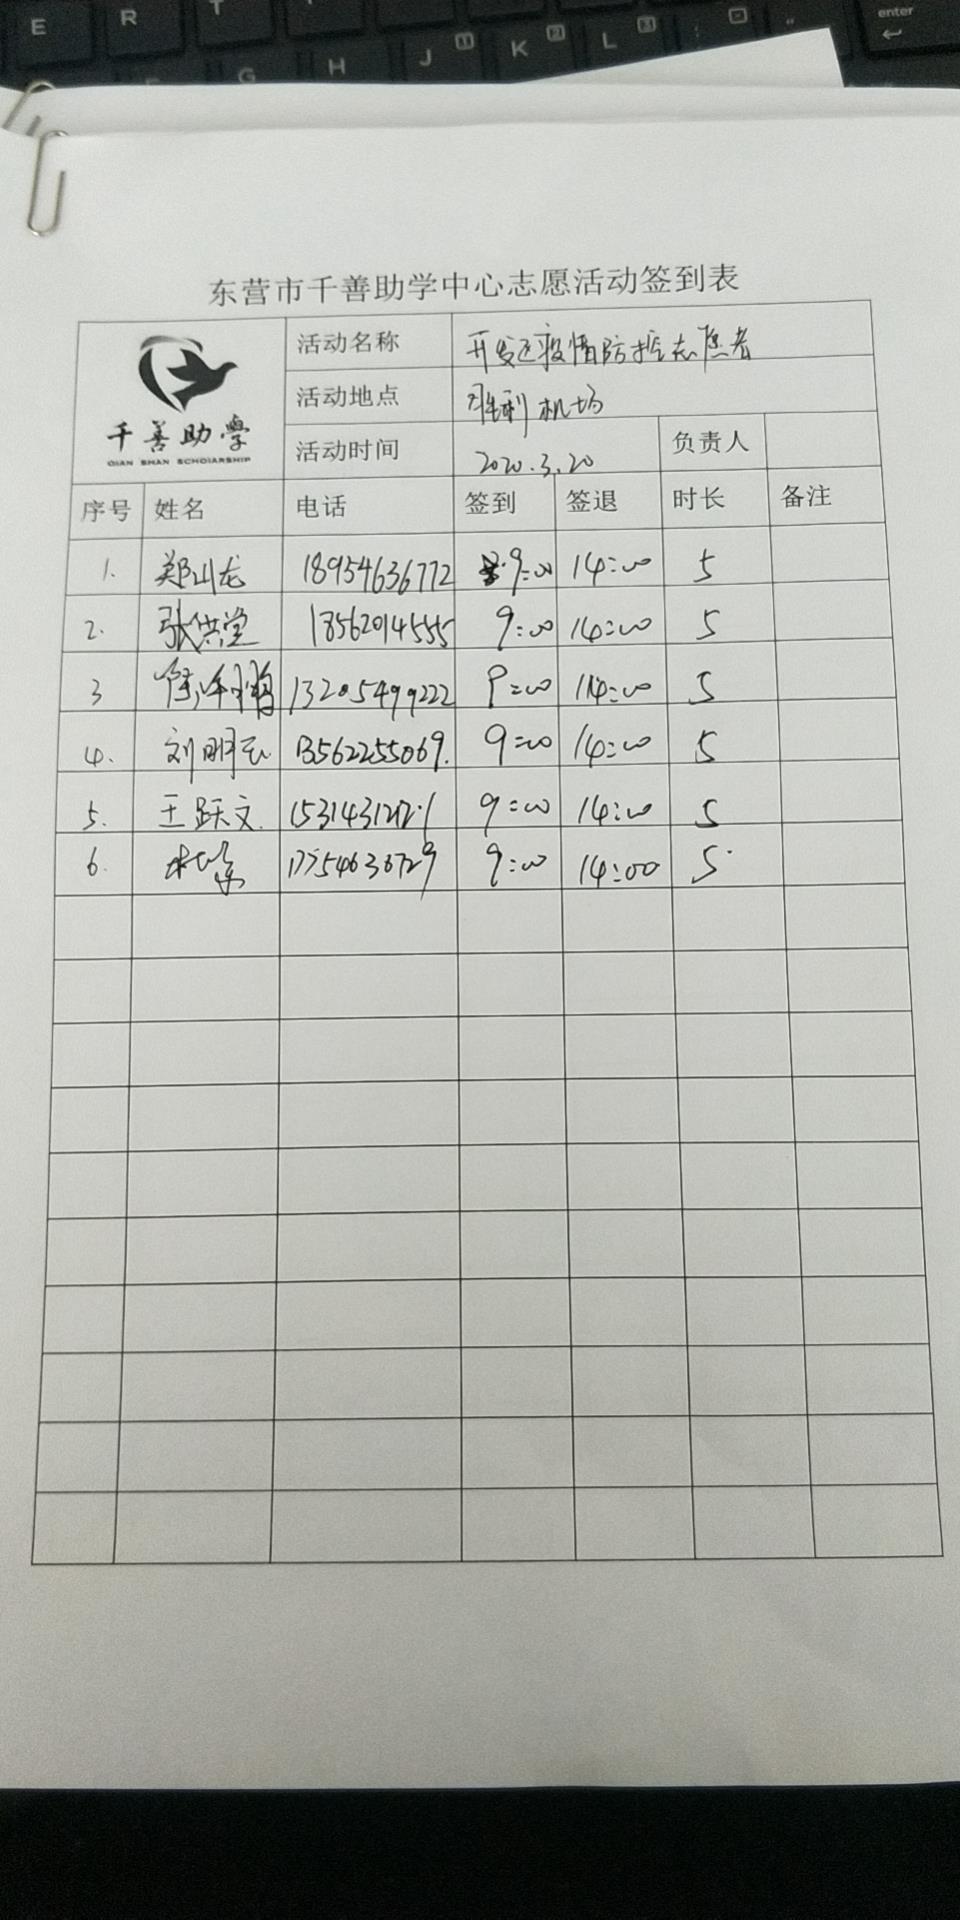 E R T
G H J 1 K 2 L 3 : ; "
enter
东营市千善助学中心志愿活动签到表
千善助学
QIAN SHAN SCHOLARSHIP
活动名称 开发区疫情防控志愿者
活动地点 胜利机场
活动时间 2020.3.20 负责人
序号 姓名 电话 签到 签退 时长 备注
1. 郑山龙 18954636772 9:00 14:00 5
2. 张洪堂 18562014555 9:00 14:00 5
3 13205499222 9:00 14:00 5
4. 刘明 13562255069. 9:00 14:00 5
5. 王跃文. 9:00 14:00 5
6. 17754636729 9:00 14:00 5